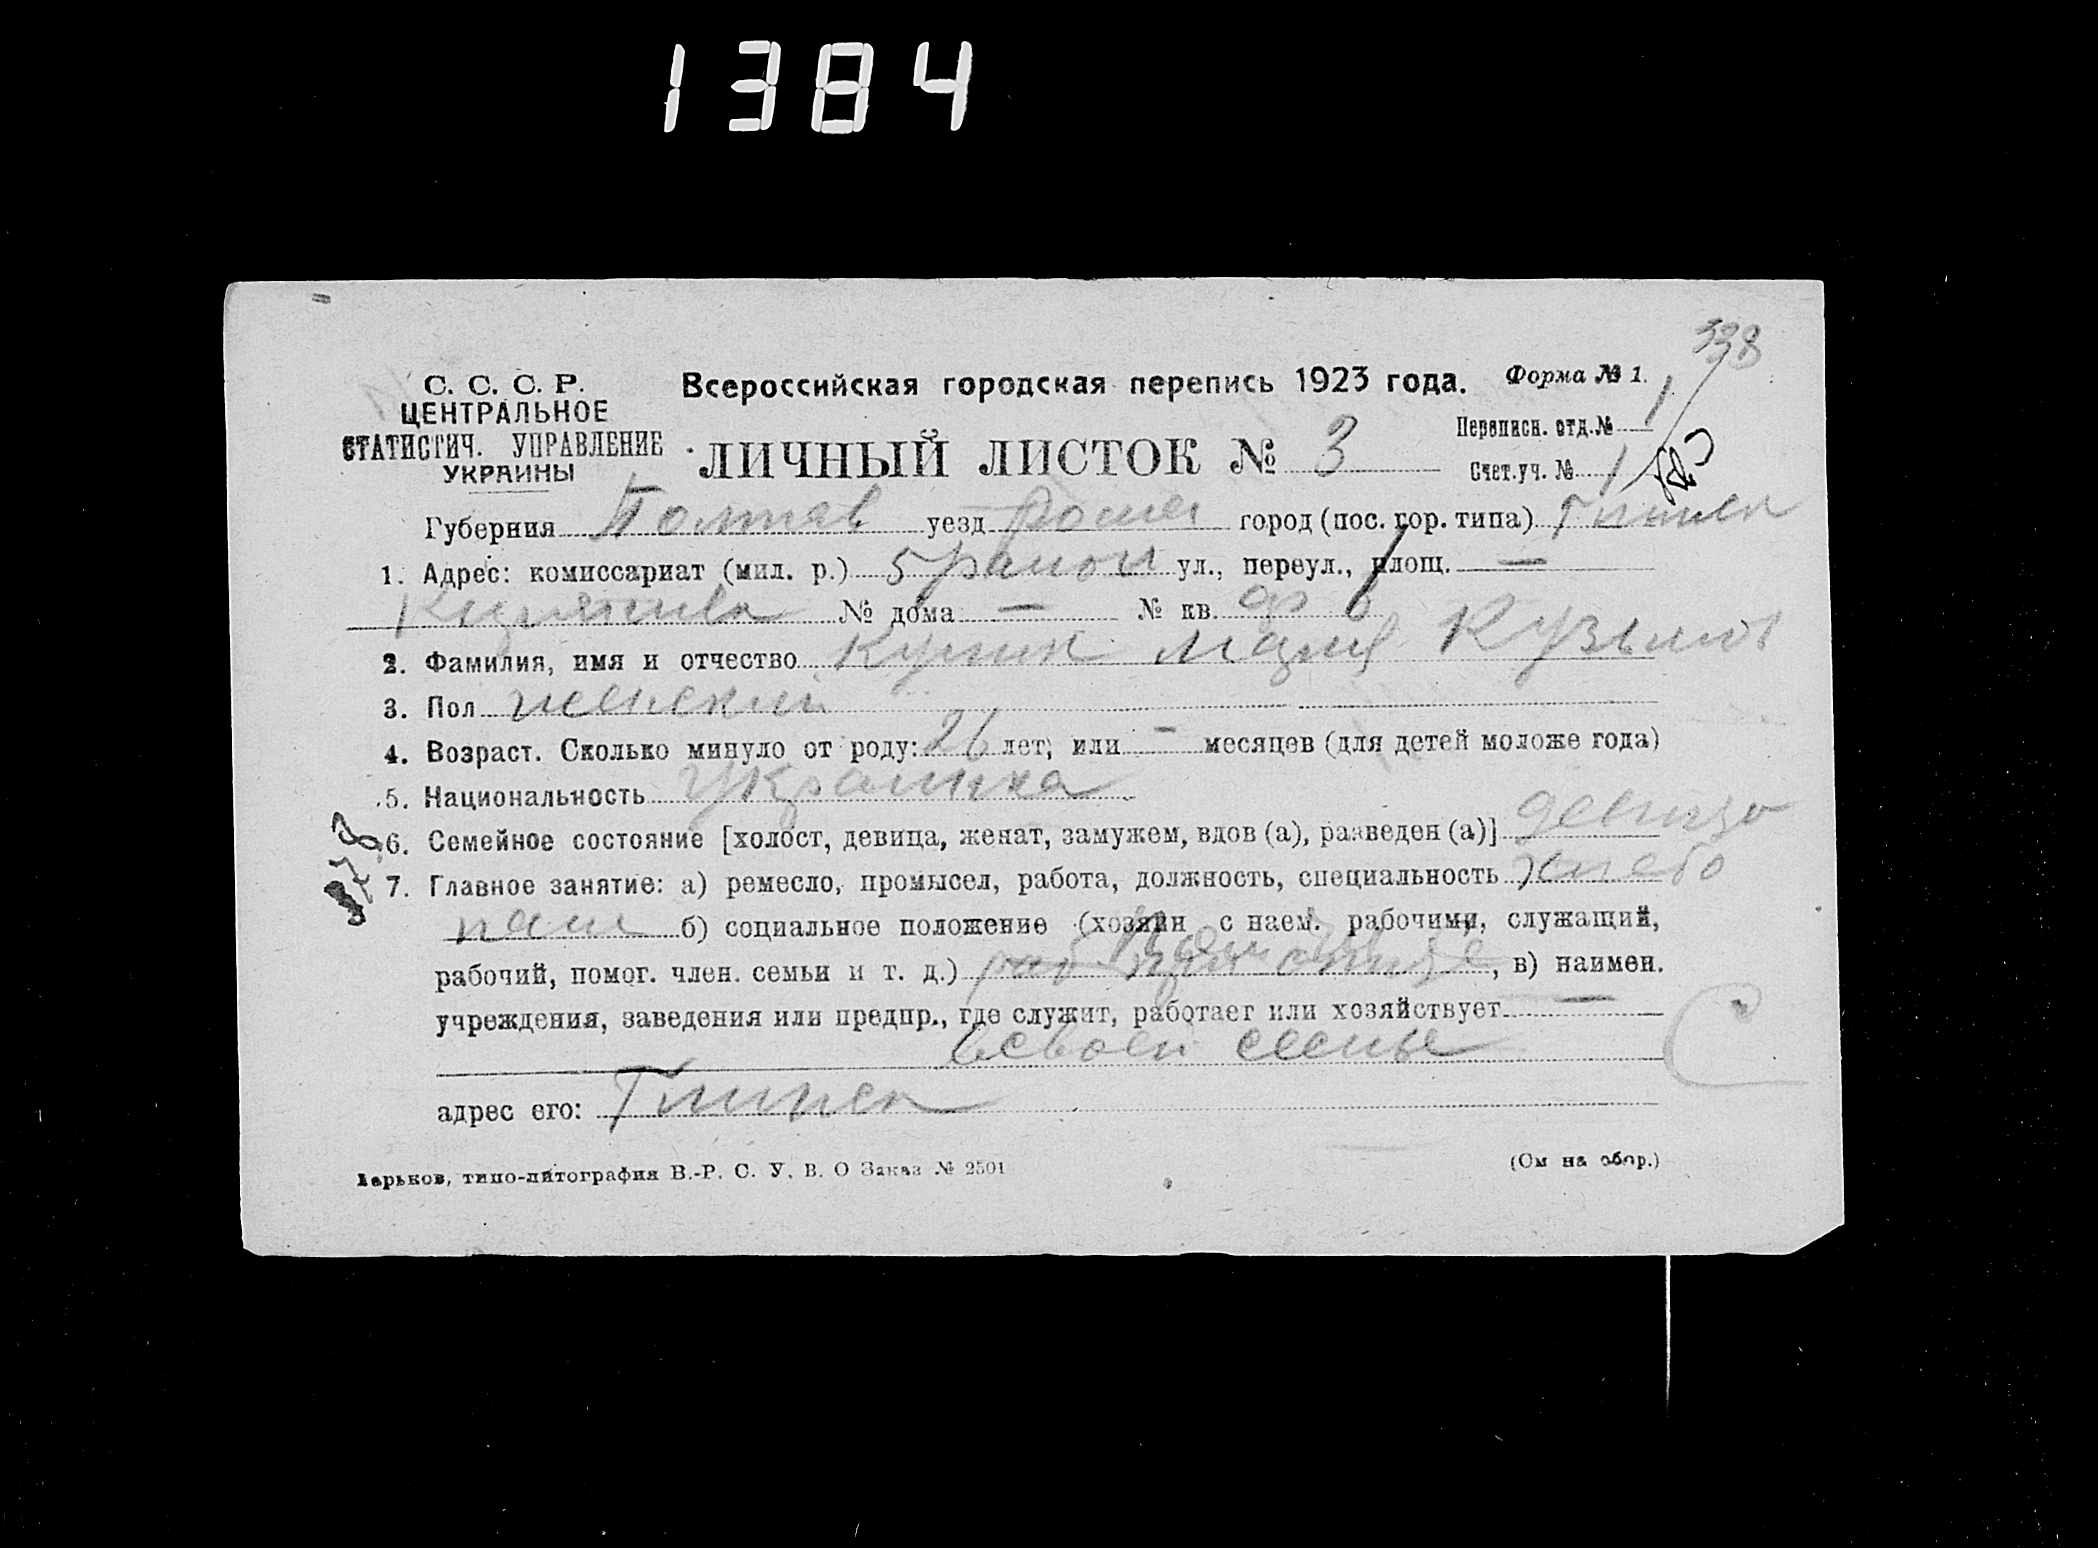 1384
338
С. С. С. Р.
ЦЕНТРАЛЬНОЕ
СТАТИСТИЧ. УПРАВЛЕНИЕ
УКРАИНЫ
Всероссийская городская перепись 1923 года.
Форма № 1.
ЛИЧНЫЙ ЛИСТОК № 3
Переписн. отд. № 1
Счет. уч. № 1
Губерния Полтав уезд Ромен город (пос. гор. типа) Глинск
1. Адрес: комиссариат (мил. р.) 5 район ул., переул., площ. —
№ дома — № кв.
2. Фамилия, имя и отчество Мария Кузьмов
3. Пол женский
4. Возраст. Сколько минуло от роду: 26 лет, или — месяцев (для детей моложе года)
5. Национальность Украинка
6. Семейное состояние [холост, девица, женат, замужем, вдов (а), разведен (а)] девица
7. Главное занятие: а) ремесло, промысел, работа, должность, специальность хлебо
паш б) социальное положение (хозяин с наем. рабочими, служащий,
рабочий, помог. член. семьи и т. д.) , в) наимен.
учреждения, заведения или предпр., где служит, работает или хозяйствует —
в своей семье
адрес его: Глинск
Харьков, типо-литография В.-Р. С. У. В. О Заказ № 2501
(См на обор.)